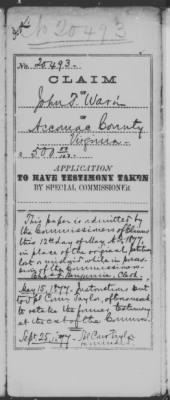 No 20493
No. 20493.
CLAIM
OF
John S. Ward
OF
Accomac County
Virginia
$ 500
APPLICATION
TO HAVE TESTIMONY TAKEN
BY SPECIAL COMMISSIONER
This paper is admitted by
the Commissioners of Claims
this 12th day of May A.D. 1877
in place of the original petition
lost or mislaid while in possession
of the Commissioners.
Benjamin, Clerk.
May 15, 1877. Instructions sent
to
to retake the former testimony
at the cost of the
Sept. 25, 1877.